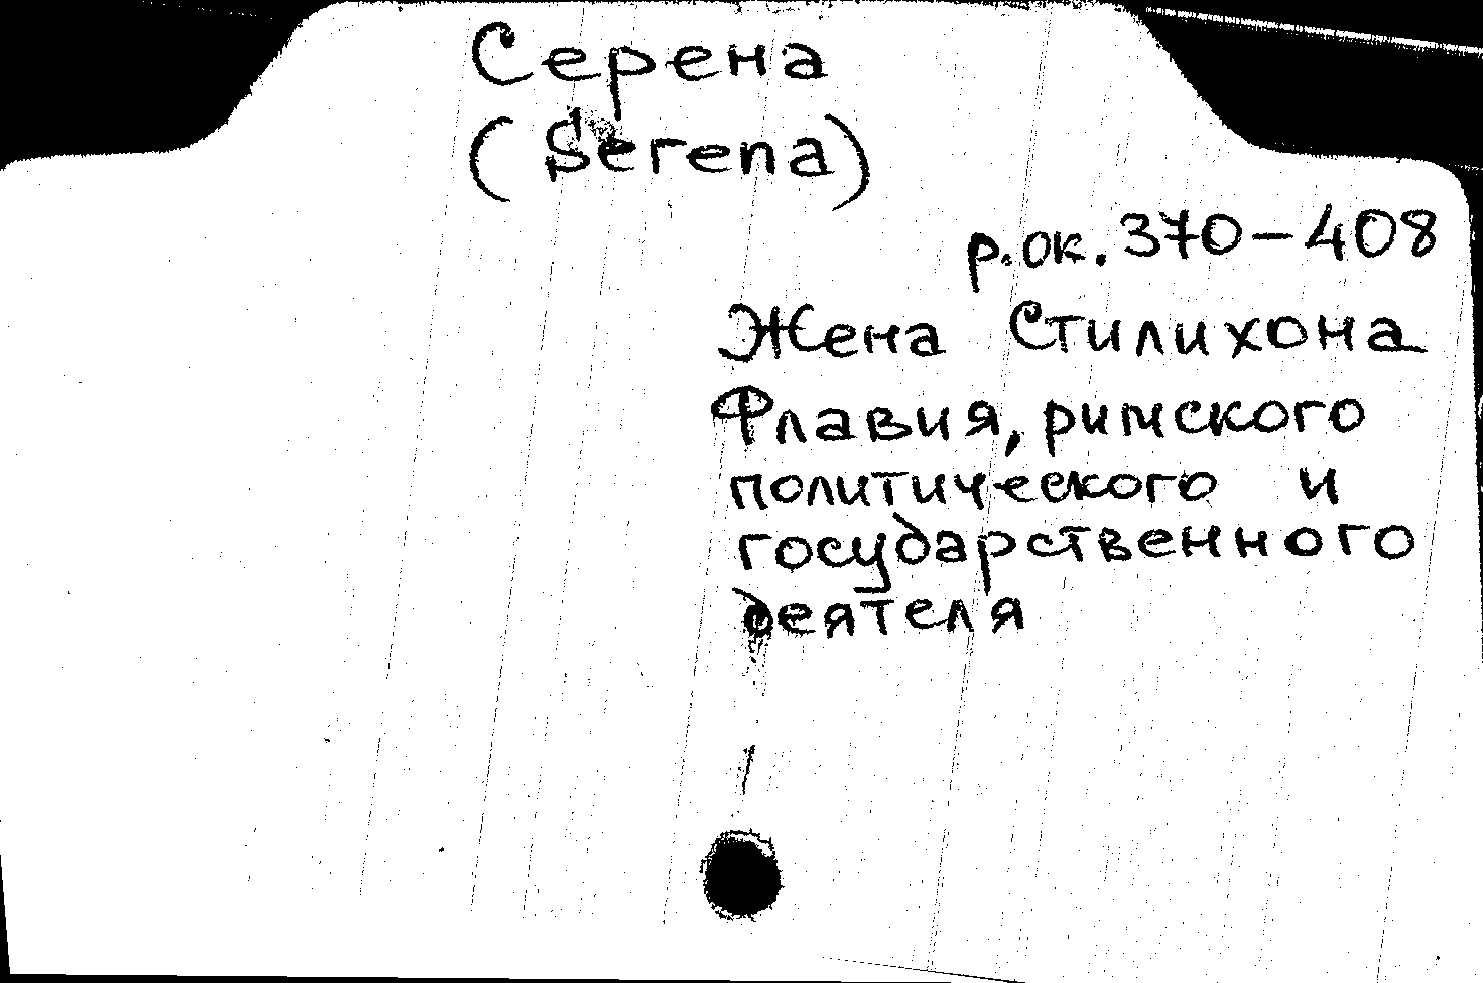 Серена
(Serena)
р.ок. 370-408
Жена Стилихона
Флавия, римского
политического и
государственного
деятеля